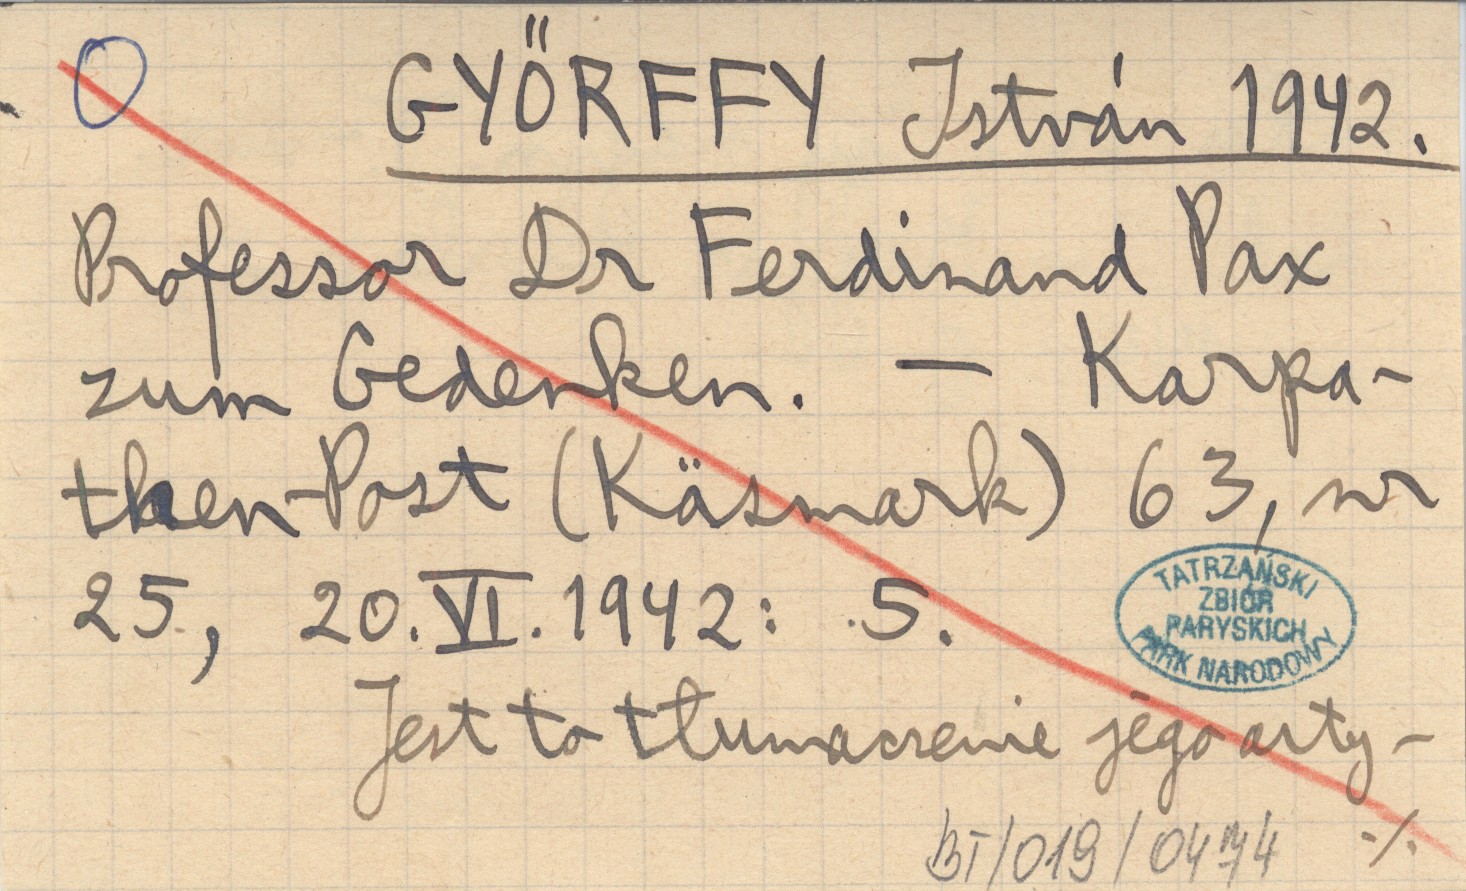 GYÖRFFY István 1942.
Professor Dr Ferdinand Pax
zum Gedenken. — Karpa-
then-Post (Käsmark) 63, nr
25, 20.VI.1942: 5.
TATRZAŃSKI
ZBIÓR
PARYSKICH
PARK NARODOWY
Jest to tłumaczenie jego arty-
./.
BT/019/0474